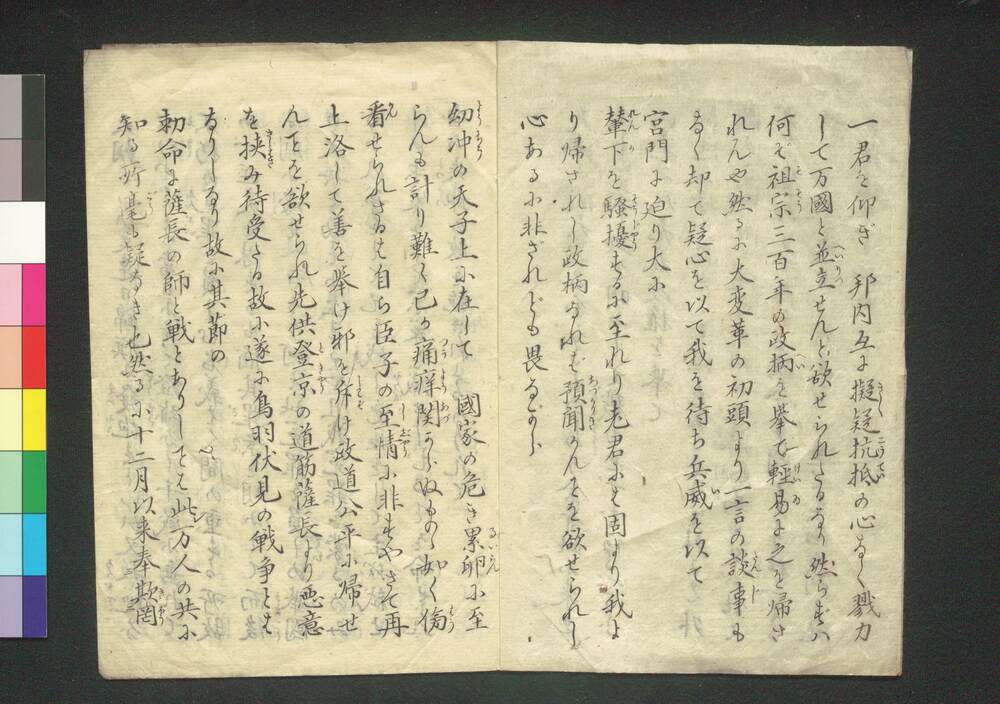 一君を仰ぎ　邦内互に擬疑抗抵の心なく戮力
して万國と並立せんと欲せられたるなり然らずハ
何ぞ祖宗三百年の政柄を挙て軽易に之を帰さ
れんや然るに大変革の初頭より一言の談事も
なく却て疑心を以て我を待ち兵威を以て
宮門に迫り大に
輦下を騒擾するに至れり老君にも固より我よ
り帰されし政柄なれば預聞かんことを欲せられし
心あるに非ざれども畏多くも
幼冲の天子上に在して　國家の危き累卵に至
らんも計り難く己が痛痒関からぬものゝ如く傍
看せられざるは自ら臣子の至情に非ずやさて再
上洛して善を挙け邪を斥け政道公平に帰せ
んことを欲せられ先供登京の道筋薩長より悪意
を挟み待受たる故に遂に鳥羽伏見の戦争とは
なりしなり故に其節の
勅命に薩長の師と戦とありしことは此万人の共に
知る所毫も疑なき也然るに十二月以来奉欺罔